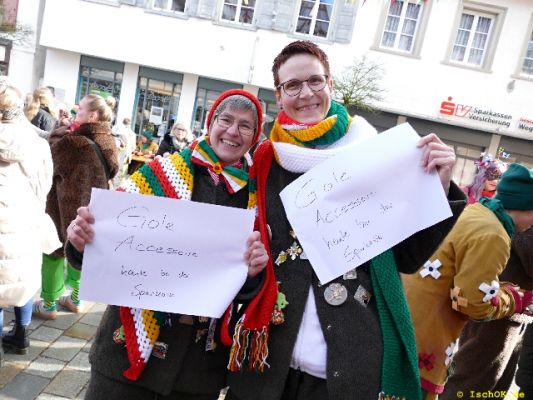 Giole
Accessoire
heute bei der
Sparkasse
Giole
Accessoire
heute bei der
Sparkasse
Sparkassen
Versicherung
© IschOK.de